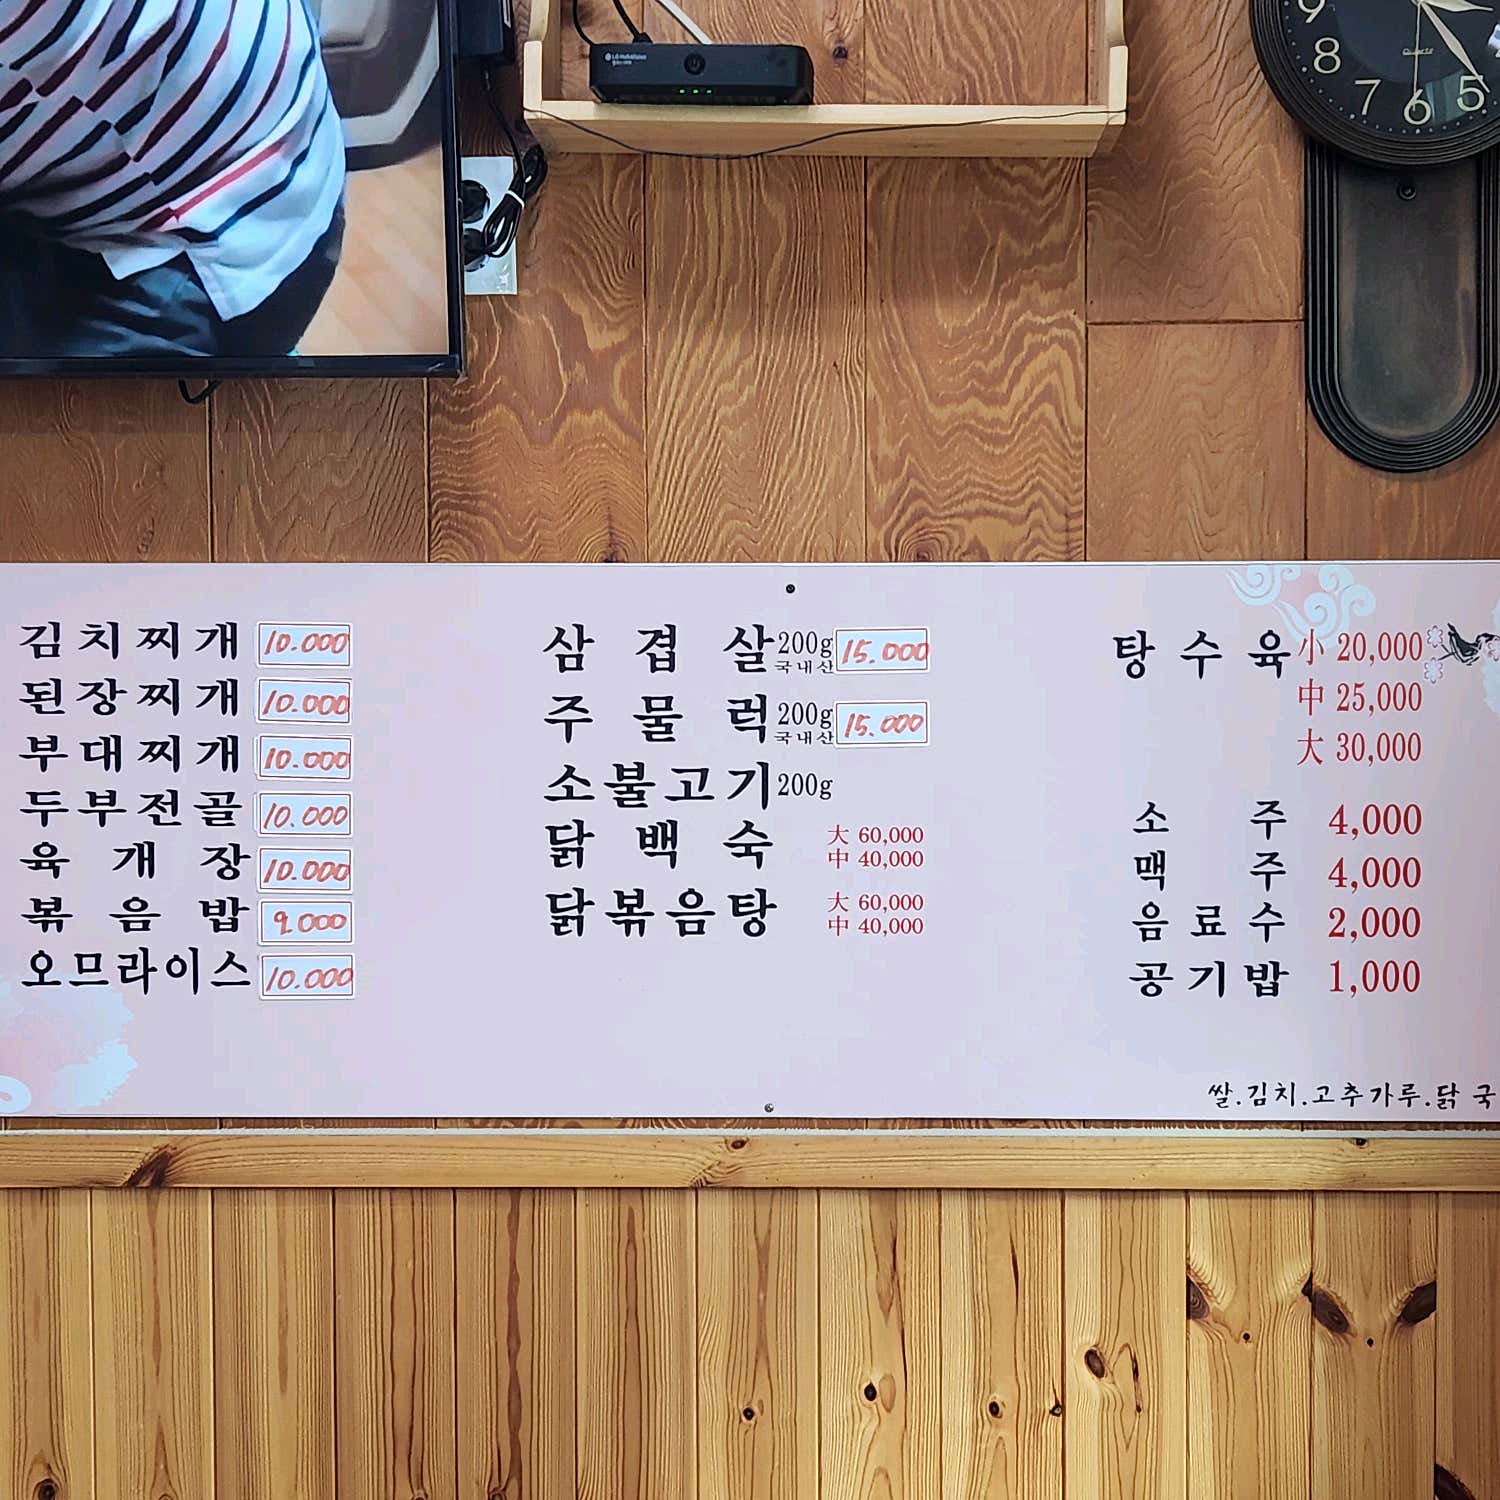 LG HelloVision
9
8
7
6
5
Quartz
김치찌개 10.000
된장찌개 10.000
부대찌개 10.000
두부전골 10.000
육개장 10.000
볶음밥 9.000
오므라이스 10.000
삼겹살 200g 국내산 15.000
주물럭 200g 국내산 15.000
소불고기 200g
닭백숙 大 60,000
中 40,000
닭볶음탕 大 60,000
中 40,000
탕수육 小 20,000
中 25,000
大 30,000
소주 4,000
맥주 4,000
음료수 2,000
공기밥 1,000
쌀.김치.고추가루.닭 국